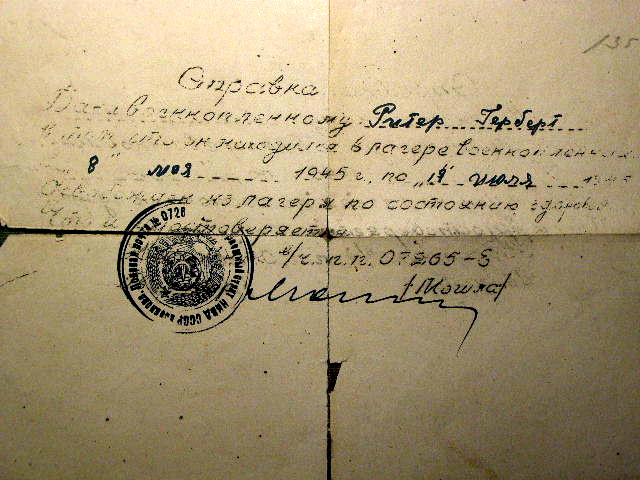 135
Справка
Дана военнопленному Ритер Герберт
в том, что он находился в лагере военнопленных
8 мая 1945 г. по "19" июля 1945
Освобожден из лагеря по состоянию здоровья
Что и удостоверяется
в/ч. п.п. 07265-Б
/Мошла/
Полевая почта № 0728
НКВД СССР